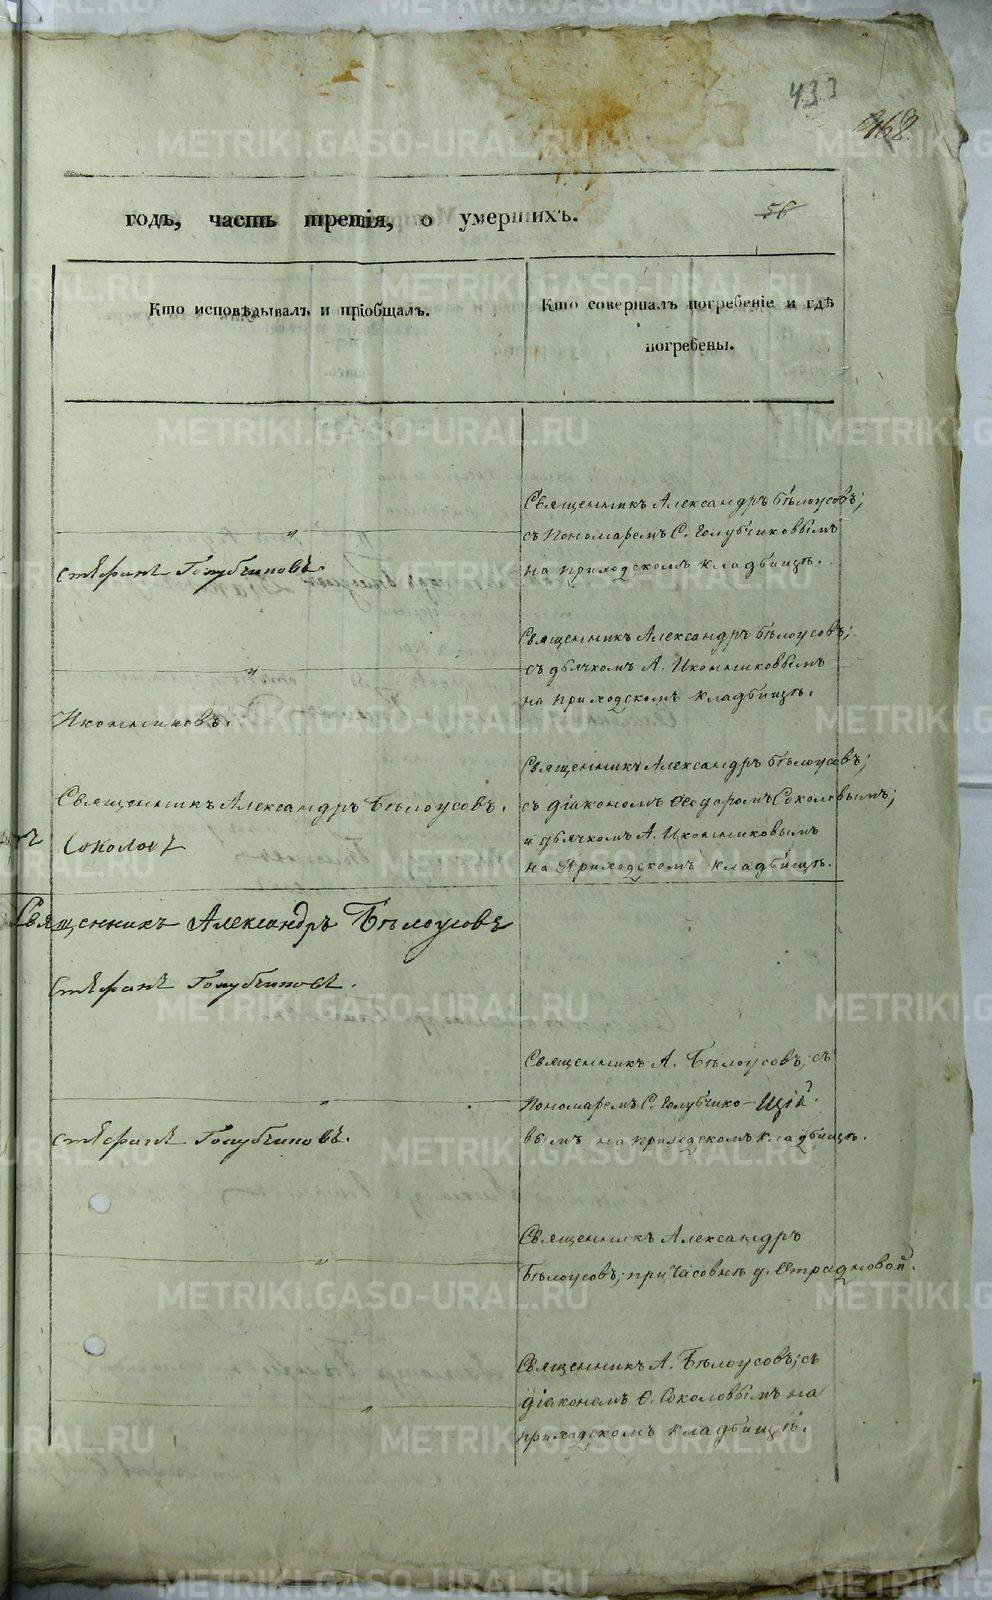 433
468
годъ, часть третія, о умершихъ.
56
Кто исповѣдывалъ и пріобщалъ.
Кто совершалъ погребеніе и гдѣ
погребены.
Священникъ Александръ Бѣлоусовъ;
съ Пономаремъ С. Голубчиковымъ
на приходскомъ кладбищѣ.
"
Стефанъ Голубчиковъ.
Священникъ Александръ Бѣлоусовъ;
съ дьячкомъ А. Иконниковымъ
на приходскомъ кладбищѣ.
"
Иконниковъ.
Священникъ Александръ Бѣлоусовъ.
Соколовъ
Священникъ Александръ Бѣлоусовъ;
съ діакономъ Ѳеодоромъ Соколовымъ;
и дьячкомъ А. Иконниковымъ
на Приходскомъ кладбищѣ.
Священникъ Александръ Бѣлоусовъ
Стефанъ Голубчиковъ.
Священникъ А. Бѣлоусовъ; съ
Пономаремъ С. Голубчико- Щій
вымъ на приходскомъ кладбищѣ.
"
Стефанъ Голубчиковъ.
Священникъ Александръ
Бѣлоусовъ; при часовнѣ д.
"
Священникъ А. Бѣлоусовъ; съ
діакономъ Ѳ. Соколовымъ на
приходскомъ кладбищѣ.
"
METRIKI.GASO-URAL.RU